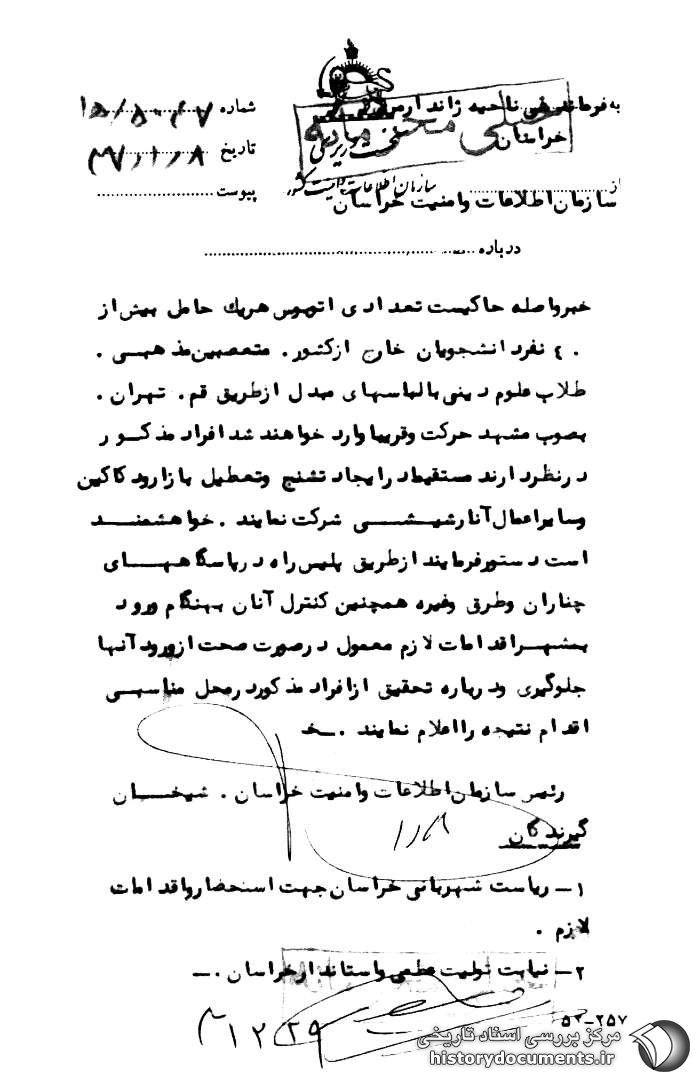 به فرماندهی ناحیه ژاندارمری
خراسان
شماره ۱۵/۵۰۴۷
نخست وزیری
خیلی محرمانه
تاریخ ۳۷/۱/۸
از سازمان اطلاعات و امنیت کشور
پیوست
سازمان اطلاعات وامنیت خراسان
درباره
خبرواصله حاکیست تعدادی اتوبوس هریك حامل بیش از
۴۰ نفردانشجویان خارج ازکشور. متعصبین مذهبی .
طلاب علوم دینی بالباسهای مبدل ازطریق قم. تهران .
بصوب مشهد حرکت وقریبا وارد خواهند شد افراد مذکور
درنظردارند مستقیما درایجاد تشنج وتعطیل بازارودکاکین
وسایراعمال آنارشیستی شرکت نمایند . خواهشمند
است دستورفرمایند ازطریق پلیس راه درپاسگاههای
چناران وطرق وغیره همچنین کنترل آنان بهنگام ورود
بمشهراقدامات لازم معمول درصورت صحت ازورود آنها
جلوگیری ودرباره تحقیق ازافراد مذکوردرمحل مناسبی
اقدام نتیجه رااعلام نمایند . خ
رئیس سازمان اطلاعات وامنیت خراسان . شیخان
گیرندگان
۱ـ ریاست شهربانی خراسان جهت استحضارواقدامات
لازم .
۲ـ نیابت تولیت عظمی واستاندارخراسان .ـ
۵۲-۲۵۷
۱۲۲۹
مرکز بررسی اسناد تاریخی
historydocuments.ir